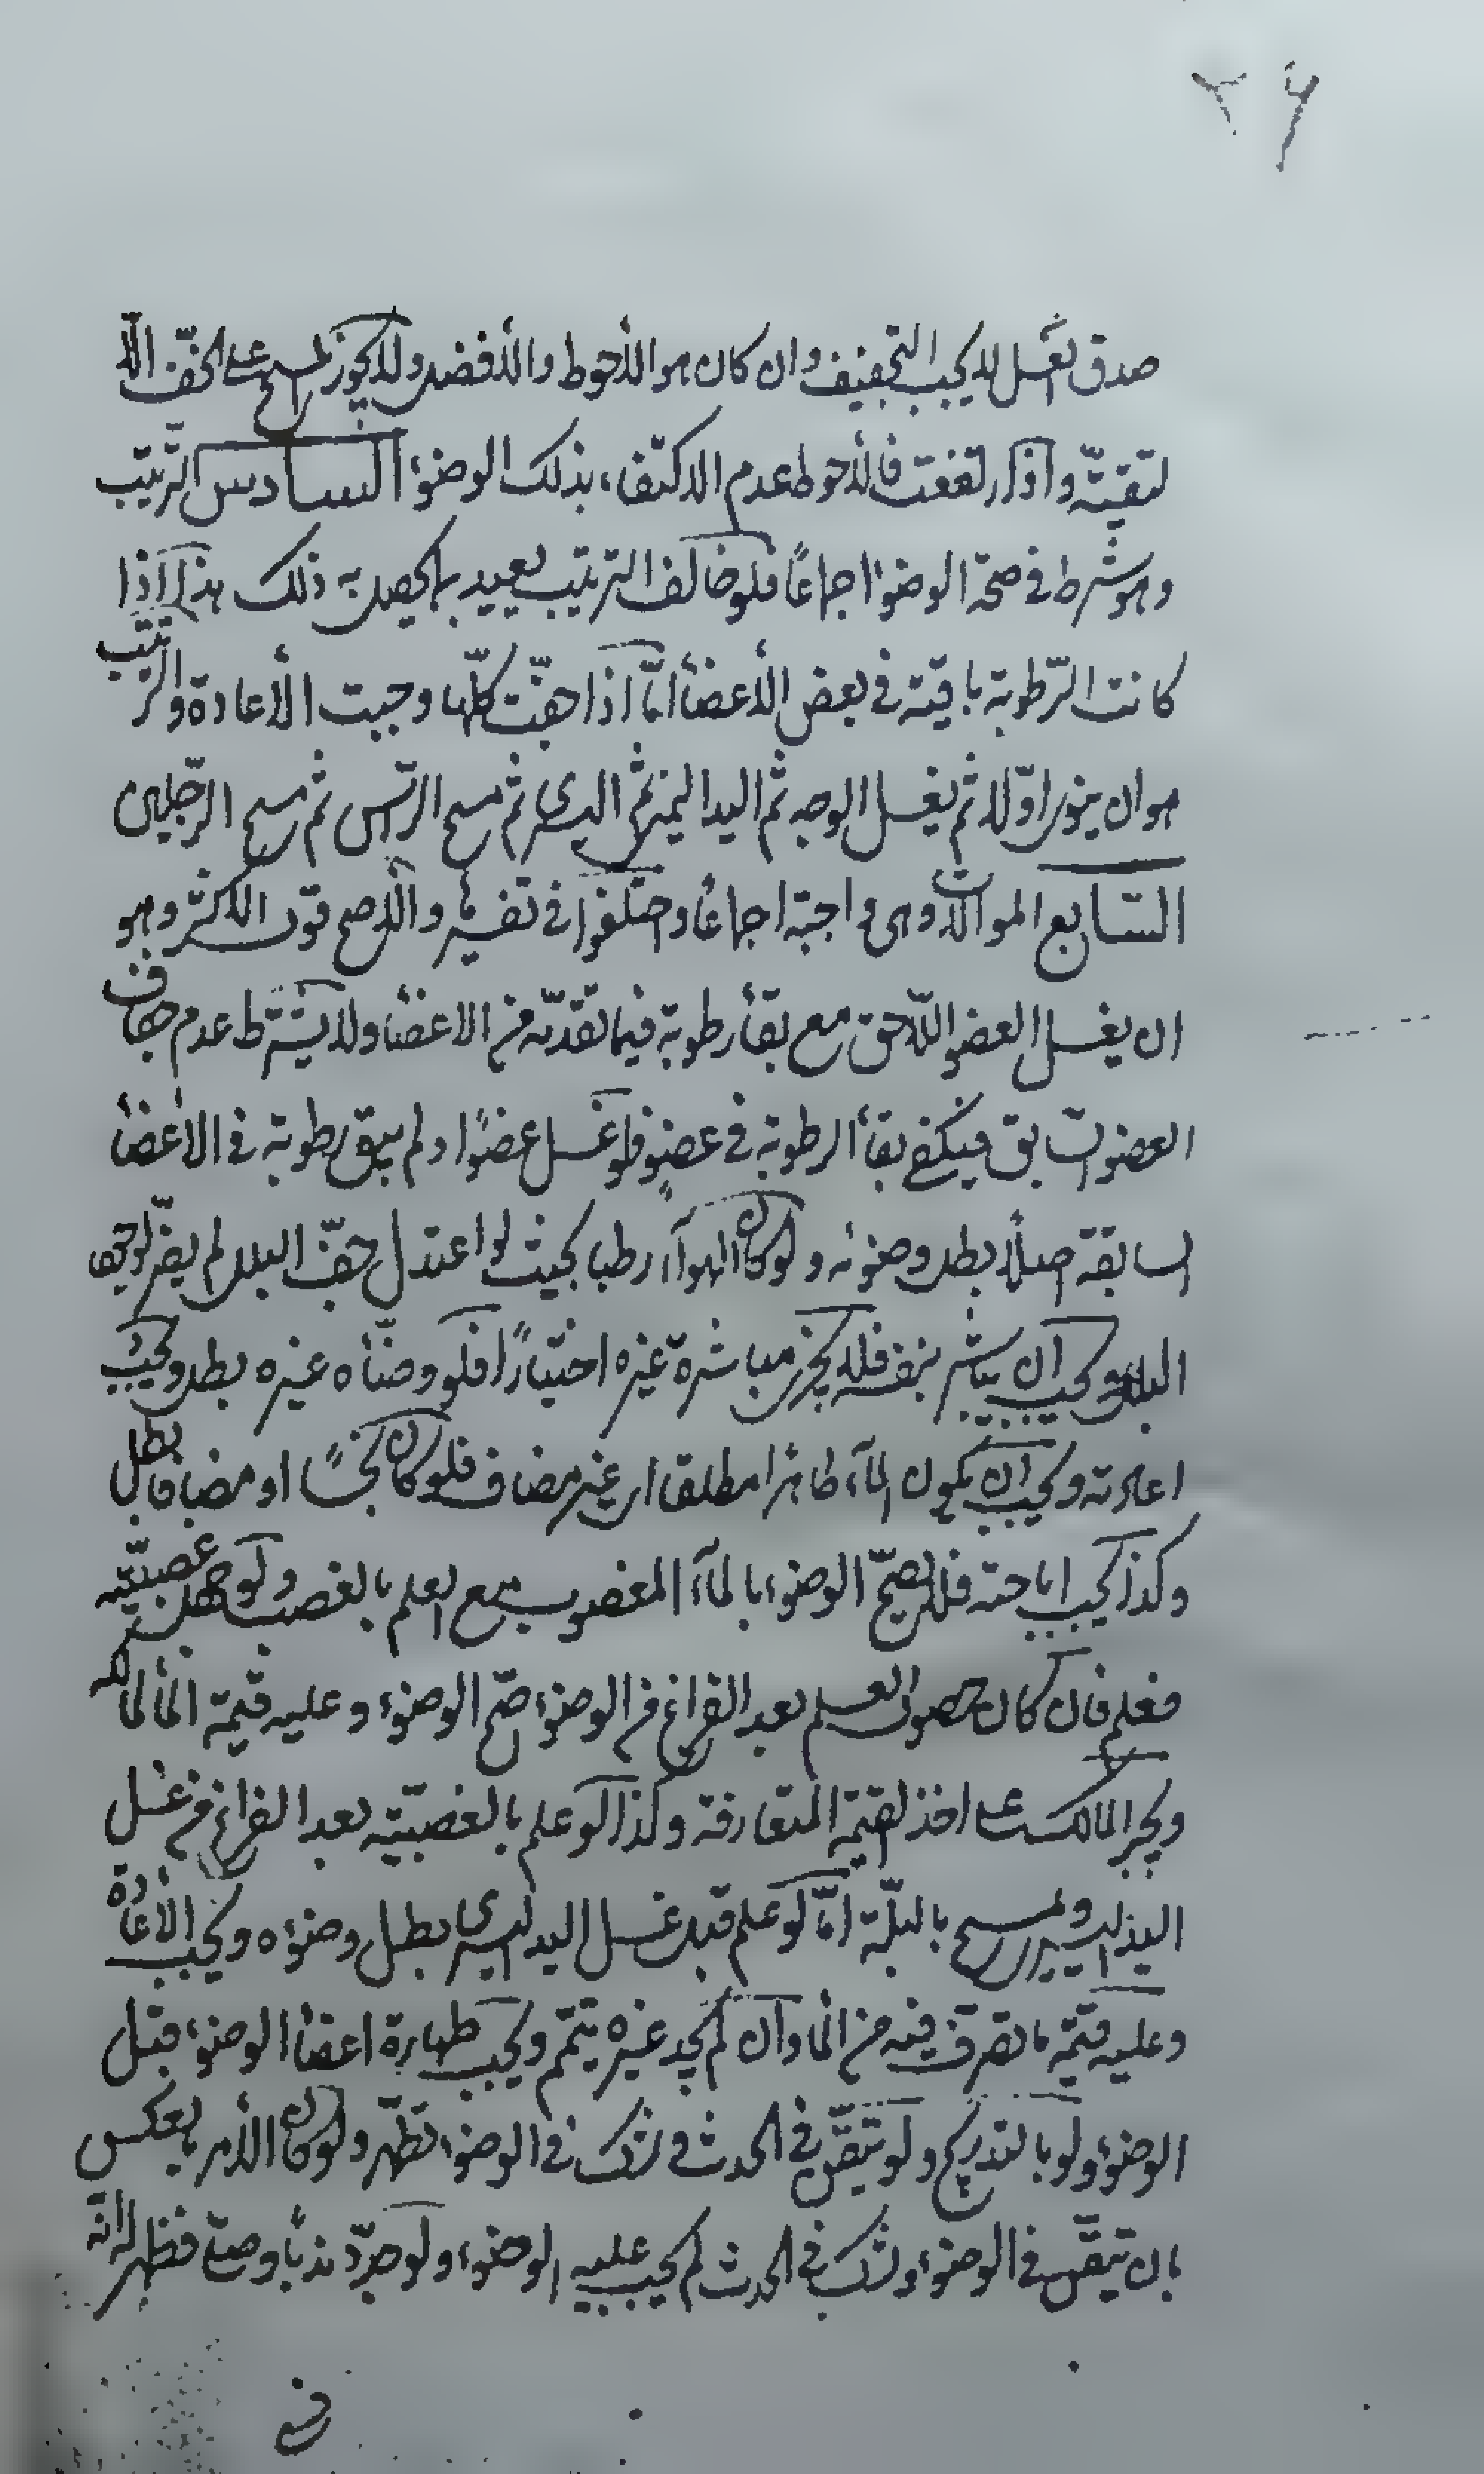 ٢٦
صدق الغسل لا يجب التجفيف وان كان هو الأحوط والأفضل ولا يجوز المسح على الخفّ الّا
لتقيّة واذا ارتفعت فالأحوط عدم الاكتفاء بذلك الوضوء السادس الترتيب
وهو شرط في صحة الوضوء اجماعًا فلو خالف الترتيب يعيد بما يحصل به ذلك هذا اذا
كانت الرّطوبة باقية في بعض الأعضاء امّا اذا جفّت كلّها وجبت الأعادة والترتيب
هو ان ينوى اوّلا ثم يغسل الوجه ثم اليد اليمنى ثم اليسرى ثم مسح الرأس ثم مسح الرّجلين
السّابع الموالات وهى واجبة اجماعًا واختلفوا في تفسيرها والأصح قول الأكثر وهو
ان يغسل العضو اللّاحق مع بقاء رطوبة فيما تقدّمه من الاعضاء ولا يشترط عدم جفاف
العضو السابق فيكفي بقاء الرطوبة في عضو فلو غسل عضوًا ولم يبق رطوبة في الاعضاء
السابقة اصلًا بطل وضوئه ولو كان الهوآء رطبا بحيث لو اعتدل جفّ البلل لم يضرّ لوجود
البلل ويجب ان يباشر بنفسه فلا يجزى مباشرة غيره اختيارًا فلو وضّأه غيره بطل ويجب
اعادته ويجب ان يكون المآء طاهرا مطلقا اى غير مضاف فلو كان نجسًا او مضافا بطل
وكذا يجب اباحته فلا يصحّ الوضوء بالمآء المغصوب مع العلم بالغصب ولو جهل غصبيّته
فعلم فان كان حصول العلم بعد الفراغ من الوضوء صحّ الوضوء وعليه قيمة الماء لمالكه
ويجبر المالك على اخذ القيمة المتعارفة وكذا لو علم بالغصبيّة بعد الفراغ من غسل
اليد اليسرى ولمسح بالبلّة امّا لو علم قبل غسل اليد اليسرى بطل وضوءه ويجب الأعادة
وعليه قيمة ما تصرّف فيه من الماء وان لم يجد غيره يتمّم ويجب طهارة اعضاء الوضوء قبل
الوضوء ولو بالتدريج ولو تيقّن في الحدث وشك في الوضوء تطهّر ولو كان الأمر بعكس
بان تيقّن في الوضوء وشك في الحدث لم يجب عليه الوضوء ولو جدّد ندبًا وصلّى فظهر له انّه